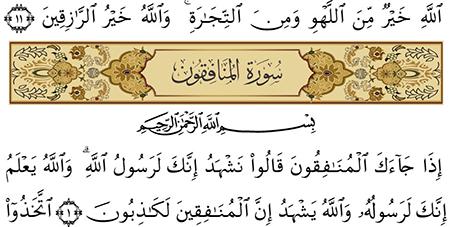 ٱللَّهِ خَيْرٌ مِّنَ ٱللَّهْوِ وَمِنَ ٱلتِّجَـٰرَةِ ۚ وَٱللَّهُ خَيْرُ ٱلرَّٰزِقِينَ ﴿١١﴾
سُورَةُ المُنَافِقُونَ
بِسْمِ ٱللَّهِ ٱلرَّحْمَٰنِ ٱلرَّحِيمِ
إِذَا جَآءَكَ ٱلْمُنَـٰفِقُونَ قَالُوا۟ نَشْهَدُ إِنَّكَ لَرَسُولُ ٱللَّهِ ۗ وَٱللَّهُ يَعْلَمُ
إِنَّكَ لَرَسُولُهُۥ وَٱللَّهُ يَشْهَدُ إِنَّ ٱلْمُنَـٰفِقِينَ لَكَـٰذِبُونَ ﴿١﴾ ٱتَّخَذُوٓا۟